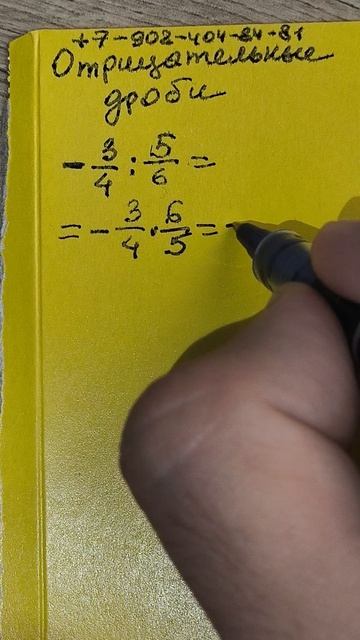 +7-902-404-84-81
Отрицательные
дроби
- 3/4 : 5/6 =
= - 3/4 · 6/5 = -